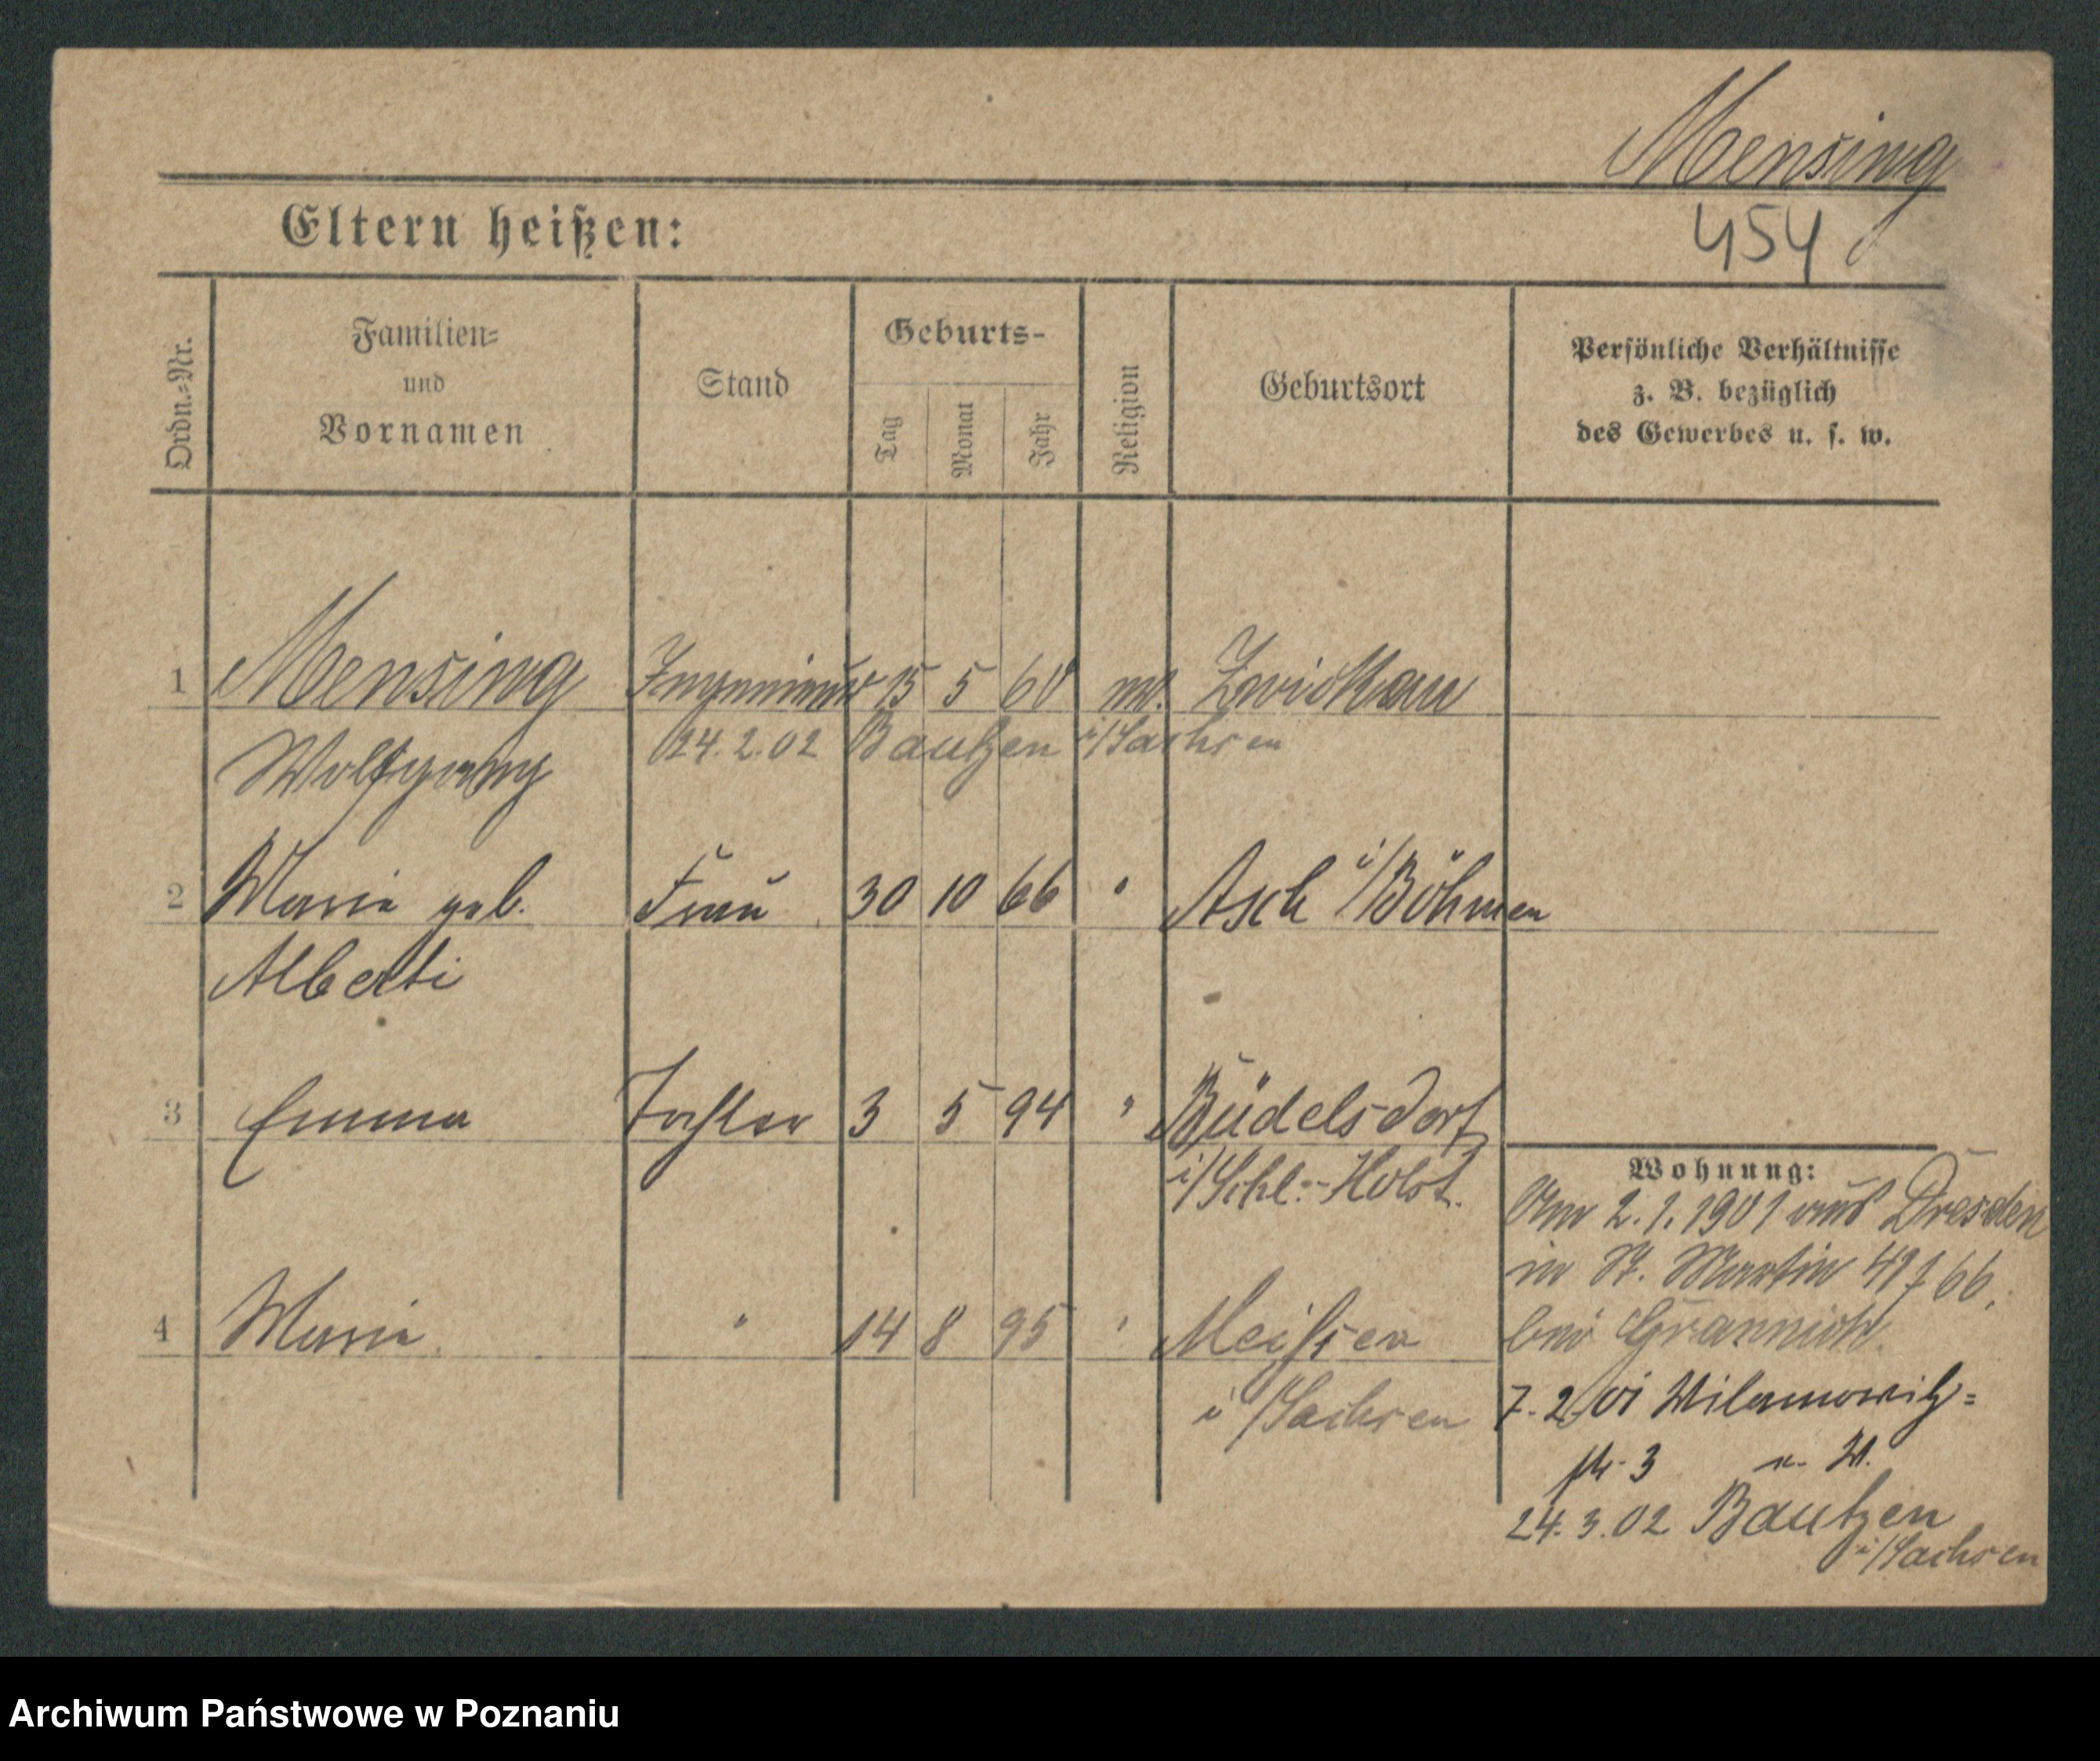 Mensing
454
Eltern heißen:
Ordn.=Nr.
Familien=
und
Vornamen
Stand
Geburts-
Tag
Monat
Jahr
Religion
Geburtsort
Persönliche Verhältnisse
z. B. bezüglich
des Gewerbes u. s. w.
1 Mensing Ingenieur 15 5 60 Zwickau
Wolfgang 24.2.02 Bautzen i/Sachsen
2 Marie geb. Frau 30 10 66 " Asch i/Böhmen
Alberti
3 Emma Tochter 3 5 94 " Büdelsdorf
i/Schl.-Holst.
Wohnung:
Am 2.1.1901 aus Dresden
in St. Martin 66,
4 Marie " 14 8 95 " Meißen
bei
i/Sachsen
7.2.01 Wilamowitz=
str. 3 u. W.
24.3.02 Bautzen
i/Sachsen
Archiwum Państwowe w Poznaniu